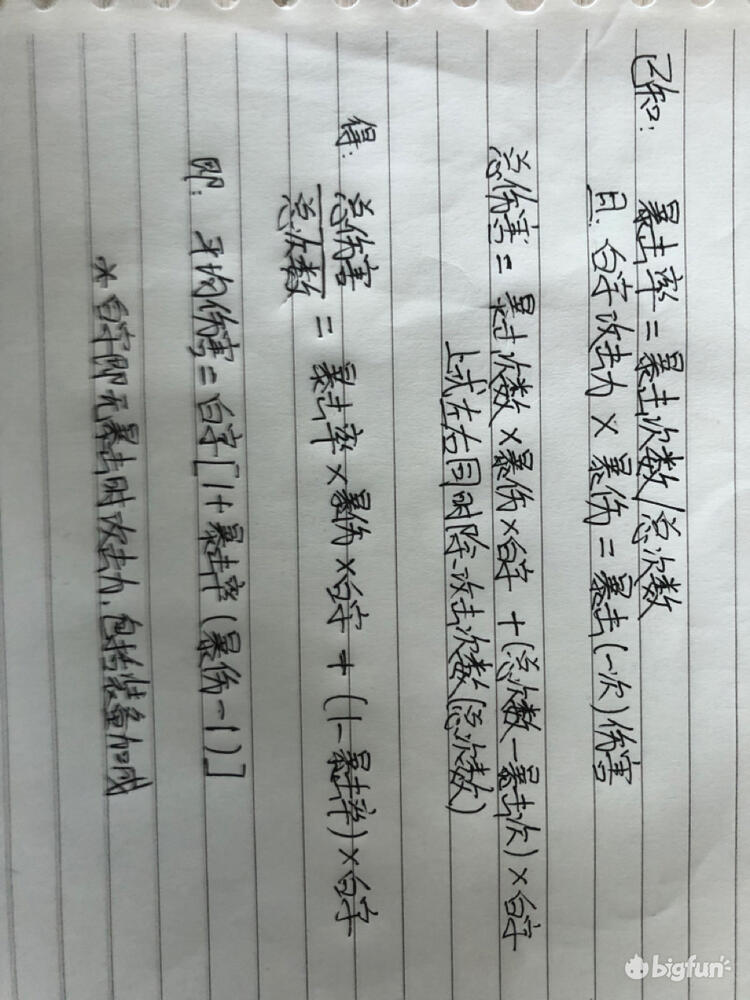 已知: 暴击率 = 暴击次数/总次数
且: 白字攻击力 × 暴伤 = 暴击(一次)伤害
总伤害 = 暴击次数 × 暴伤 × 白字 + (总次数 - 暴击次) × 白字
上式左右同时除攻击次数(总次数)
得: 总伤害/总次数 = 暴击率 × 暴伤 × 白字 + (1 - 暴击率) × 白字
即: 平均伤害 = 白字[1 + 暴击率(暴伤 - 1)]
* 白字即无暴击时攻击力, 包括装备加成
bigfun